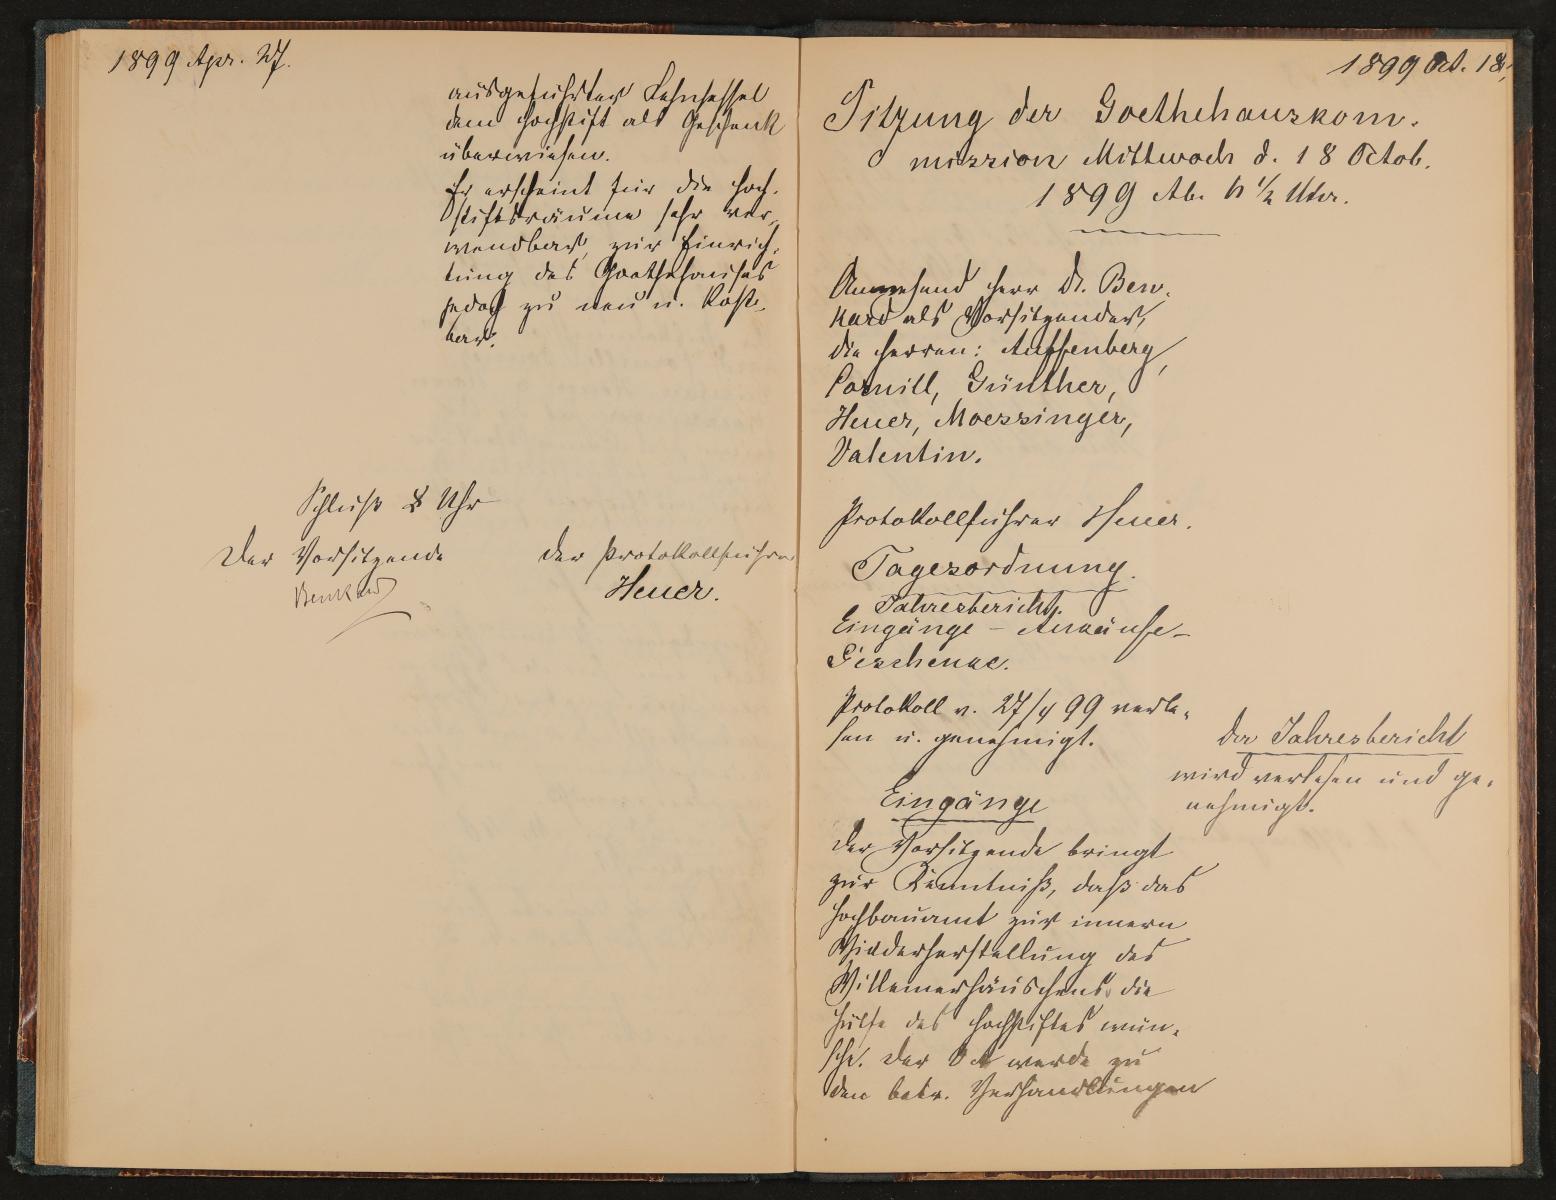 1899 Apr. 27.
ausgeführter Lehnsessel
dem Hochstift als Geschenk
überwiesen.
Er erscheint für die Hoch-
stiftsräume sehr ver-
wendbar, zur Einrich-
tung des Goethehauses
jedoch zu neu u. kost-
bar.
Schluß 8 Uhr
Der Vorsitzende
der Protokollführer
Benkard
Heuer.
1899 Oct. 18.
Sitzung der Goethehauskom-
mission Mittwoch d. 18 Octob.
1899 Ab. 6 1/2 Uhr.
Anwesend Herr Dr. Ben-
kard als Vorsitzender,
die Herren: Auffenberg,
Cornill, Günther,
Heuer, Moessinger,
Valentin.
Protokollführer Heuer.
Tagesordnung.
Jahresbericht.
Eingänge – Ankäufe –
Geschenke.
Protokoll v. 27/4 99 verle-
sen u. genehmigt.
Der Jahresbericht
wird verlesen und ge-
nehmigt.
Eingänge
Der Vorsitzende bringt
zur Kenntniß, daß das
Hochbauamt zur innern
Wiederherstellung des
Willemerhäuschens die
Hülfe des Hochstiftes wün-
sche. Der VA werde zu
den betr. Verhandlungen